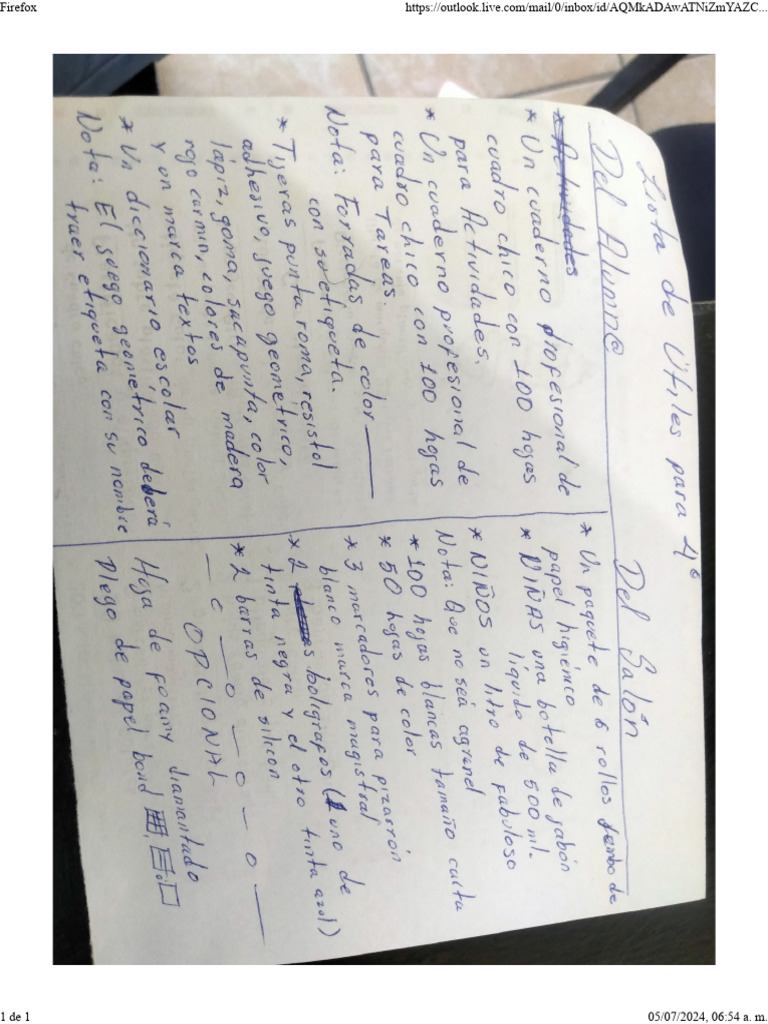 Firefox
https://outlook.live.com/mail/0/inbox/id/AQMkADAwATNiZmYAZC...
Lista de Útiles para 4°
Del Alumn@
* Un cuaderno profesional de
cuadro chico con 100 hojas
para Actividades.
* Un cuaderno profesional de
cuadro chico con 100 hojas
para Tareas.
Nota: Forradas de color ____
con su etiqueta.
* Tijeras punta roma, resistol
adhesivo, juego geometrico,
lápiz, goma, sacapunta, color
rojo carmin, colores de madera
y un marca textos
* Un diccionario escolar
Nota: El juego geometrico deberá
traer etiqueta con su nombre
Del Salón
* Un paquete de 6 rollos de
papel higiénico
* NIÑAS una botella de jabón
líquido de 500 ml.
* NIÑOS un litro de fabuloso
Nota: Que no sea agranel
* 100 hojas blancas tamaño carta
* 50 hojas de color
* 3 marcadores para pizarrón
blanco marca magistral
* 2 boligrafos (1 uno de
tinta negra y el otro tinta azul)
* 2 barras de silicon
OPCIONAL
Hoja de foamy diamantado
Pliego de papel bond
1 de 1
05/07/2024, 06:54 a. m.